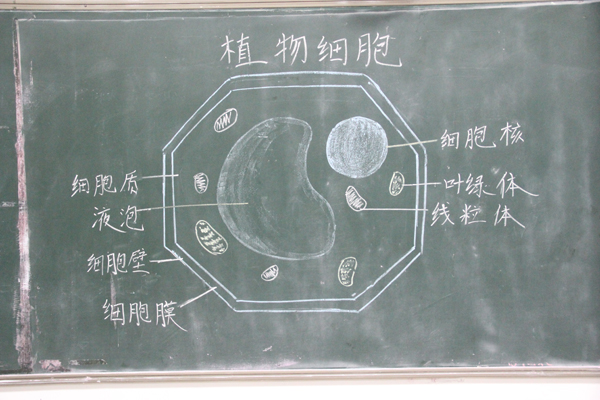 植物细胞
细胞质
液泡
细胞壁
细胞膜
细胞核
叶绿体
线粒体